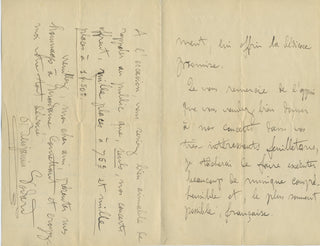 ment lui offrir la dédicace
promise.
Je vous remercie de l'appui
que vous voulez bien donner
à nos concerts dans vos
très intéressants feuilletons,
je tâcherai de faire exécuter
beaucoup de musique compré-
hensible et, le plus souvent
possible, française.
A l'occasion vous seriez bien aimable de
rappeler au public que seuls, nos concerts
offrent mille places à 75c et mille
places à 1f50c.
Veuillez, mon cher ami, présenter mes
hommages à Madame et croyez